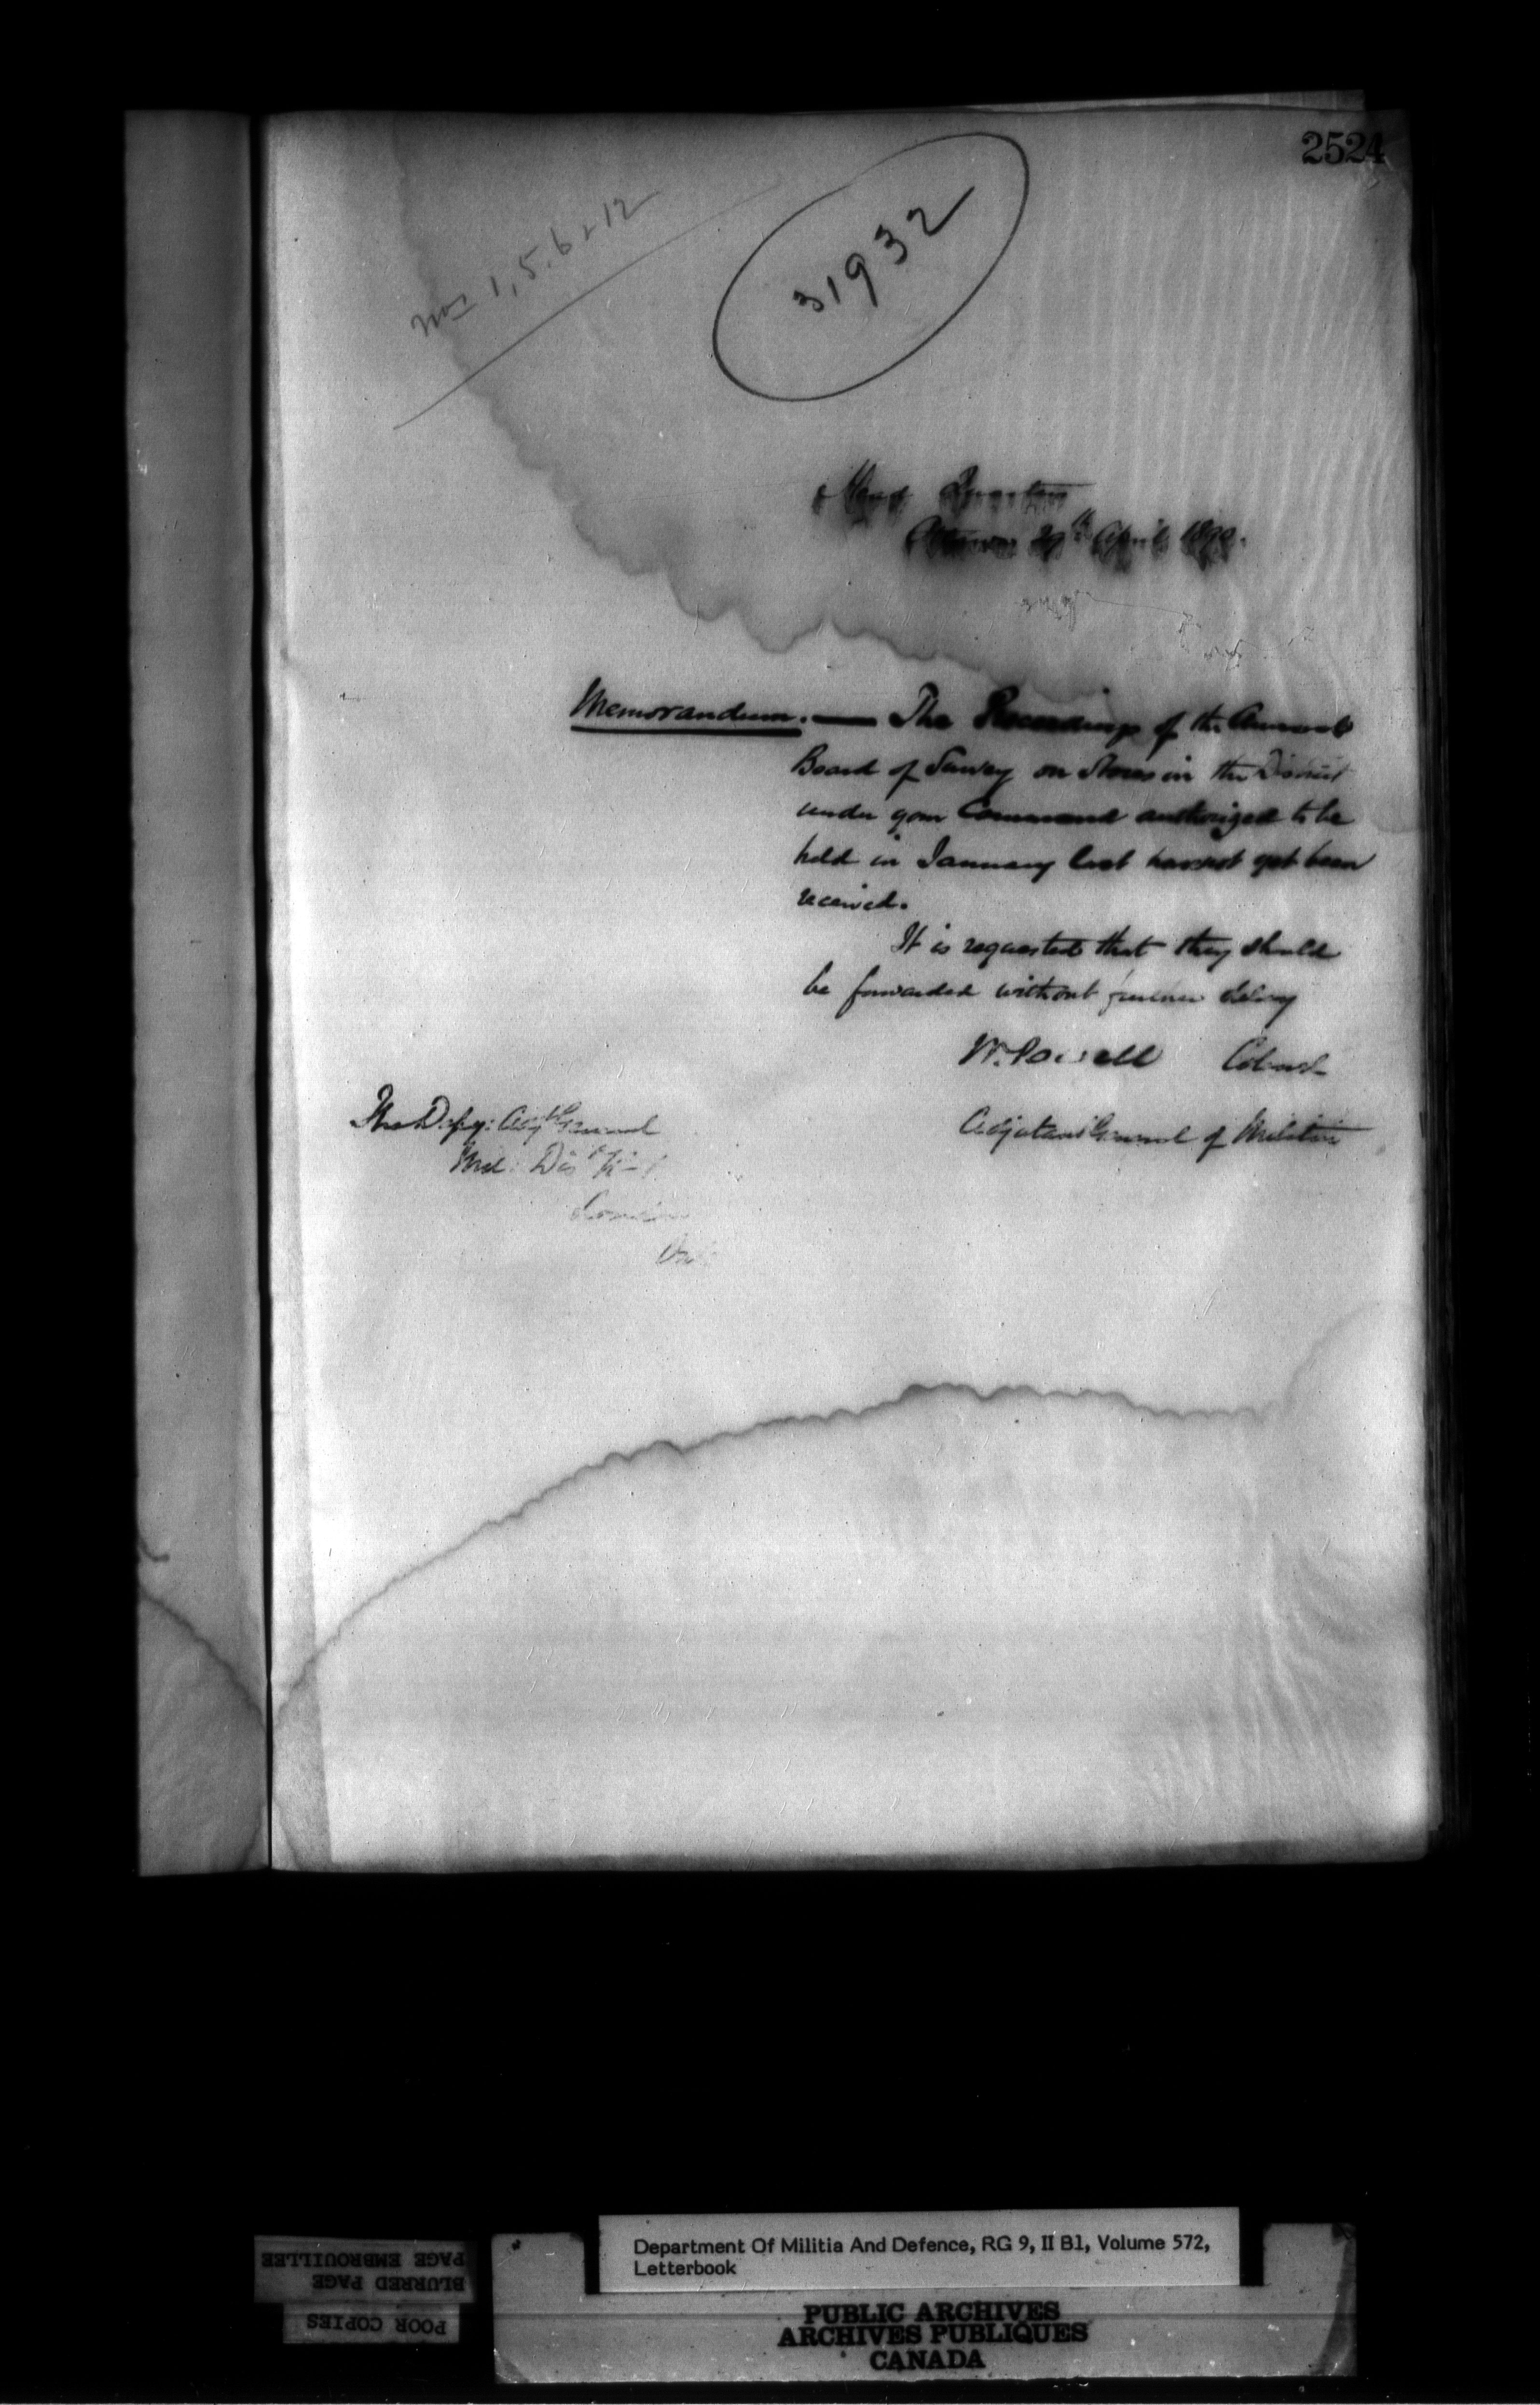 2524
Nos 1, 5. 6 & 12
31932
Head Quarters
Ottawa 29th April 1890.
Memorandum. — The Proceedings of the Annual
Board of Survey on Stores in the District
under your Command authorized to be
held in January last have not yet been
received.
It is requested that they should
be forwarded without further delay
W. Powell Colonel
Adjutant General of Militia
The Depy: Adjt General
Mil: Dist No 1
London
Ont
Department Of Militia And Defence, RG 9, II B1, Volume 572,
Letterbook
PUBLIC ARCHIVES
ARCHIVES PUBLIQUES
CANADA
POOR COPIES
BLURRED PAGE
PAGE EMBROUILLEE